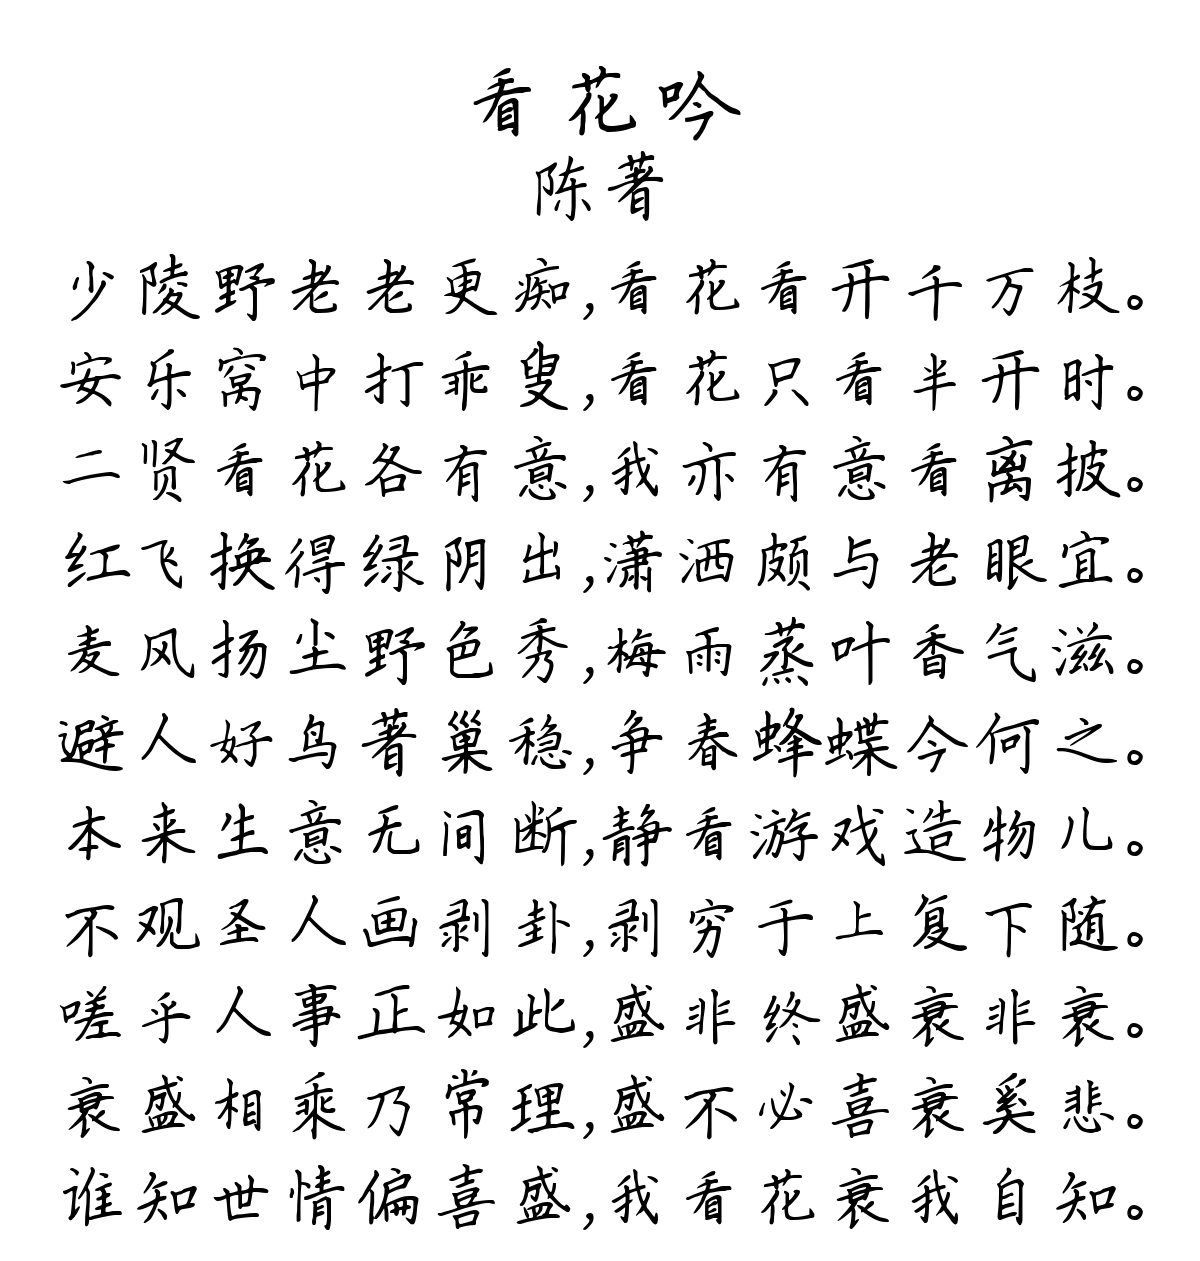 看花吟
陈著
少陵野老老更痴,看花看开千万枝。
安乐窝中打乖叟,看花只看半开时。
二贤看花各有意,我亦有意看离披。
红飞换得绿阴出,潇洒颇与老眼宜。
麦风扬尘野色秀,梅雨蒸叶香气滋。
避人好鸟著巢稳,争春蜂蝶今何之。
本来生意无间断,静看游戏造物儿。
不观圣人画剥卦,剥穷于上复下随。
嗟乎人事正如此,盛非终盛衰非衰。
衰盛相乘乃常理,盛不必喜衰奚悲。
谁知世情偏喜盛,我看花衰我自知。